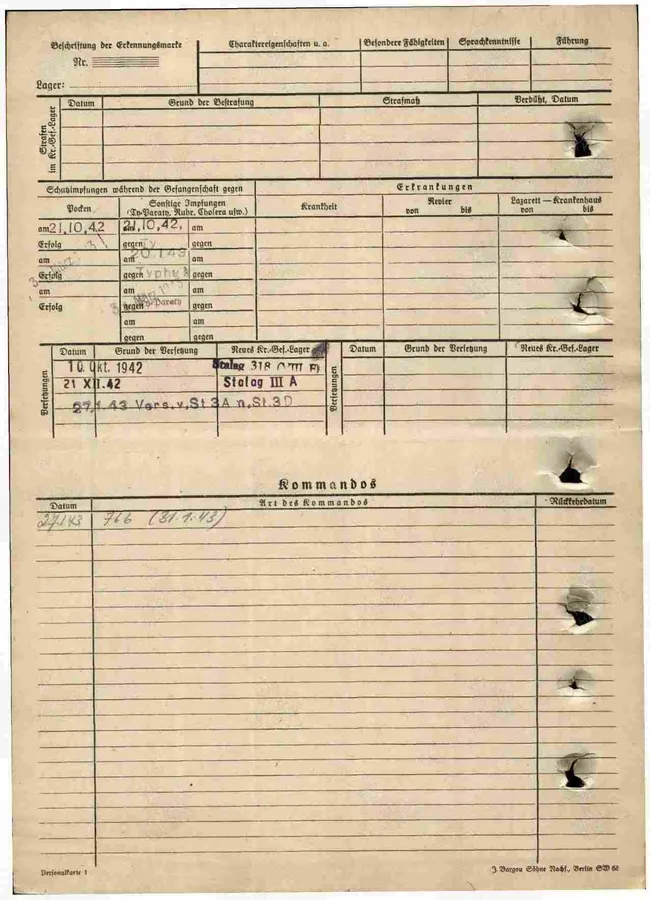 Beschriftung der Erkennungsmarke
Nr.
Lager:
Charaktereigenschaften u. a.
Besondere Fähigkeiten
Sprachkenntnisse
Führung
Strafen im Kr.-Gef.-Lager
Datum
Grund der Bestrafung
Strafmaß
Verbüßt, Datum
Schutzimpfungen während der Gefangenschaft gegen
Erkrankungen
Pocken
Sonstige Impfungen
(Ty-Paraty, Ruhr, Cholera usw.)
Krankheit
Revier
von bis
Lazarett — Krankenhaus
von bis
am 21.10.42 am 21.10.42. am
Erfolg gegen Ty gegen
am am 20.1.43 am
Erfolg gegen Typhus gegen
am am am
Erfolg gegen Paraty gegen
am am
gegen gegen
Versetzungen
Datum Grund der Versetzung Neues Kr.-Gef.-Lager
10. Okt. 1942 Stalag 318 (VIII F)
21 XII.42 Stalag III A
27.1.43 Vers.v.St 3A n.St.3D
Versetzungen
Datum Grund der Versetzung Neues Kr.-Gef.-Lager
Kommandos
Datum Art des Kommandos Rückkehrdatum
27.1.43 766 (31.1.43)
Personalkarte 1
J. Bargou Söhne Nachf., Berlin SW 68